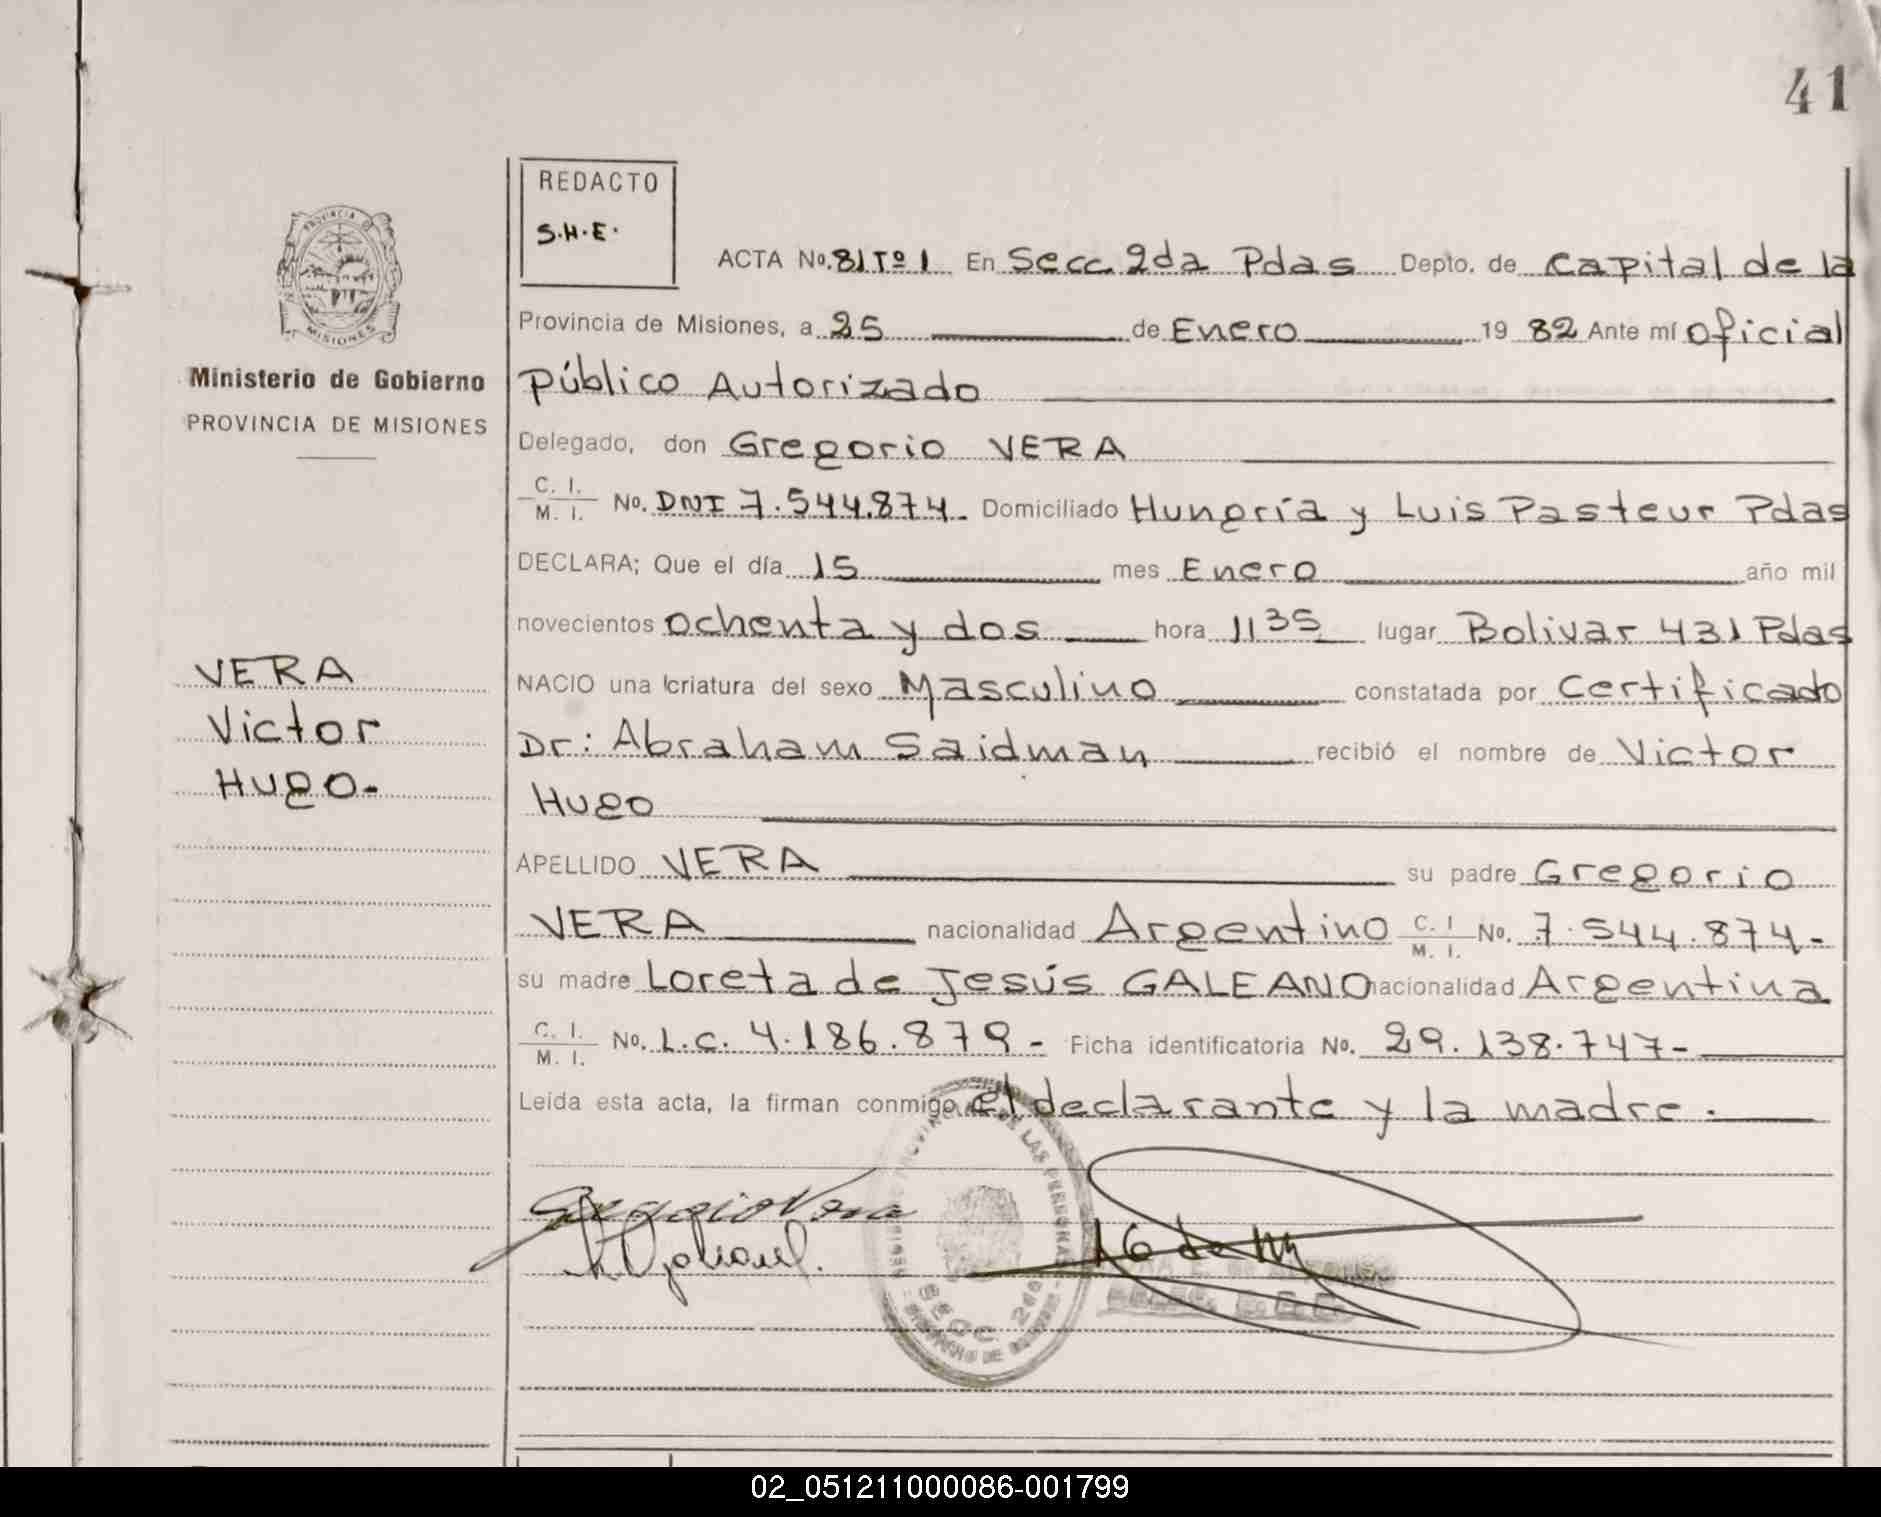 41
REDACTO
S.H.E.
PROVINCIA DE
MISIONES
Ministerio de Gobierno
PROVINCIA DE MISIONES
VERA
Victor
Hugo.-
ACTA No. 81 Tº 1 En Secc. 2da Pdas Depto. de Capital de la
Provincia de Misiones, a 25 de Enero 19 82 Ante mí oficial
Público Autorizado
Delegado, don Gregorio VERA
C. I. / M. I. No. DNI 7.544.874.- Domiciliado Hungría y Luis Pasteur Pdas
DECLARA; Que el día 15 mes Enero año mil
novecientos ochenta y dos hora 11 35 lugar Bolivar 431 Pdas
NACIO una criatura del sexo Masculino constatada por Certificado
Dr: Abraham Saidman recibió el nombre de Victor
Hugo
APELLIDO VERA su padre Gregorio
VERA nacionalidad Argentino C. I. / M. I. No. 7.544.874.-
su madre Loreta de Jesús GALEANO nacionalidad Argentina
C. I. / M. I. No. L.C. 4.186.879.- Ficha identificatoria No. 29.138.747.-
Leída esta acta, la firman conmigo el declarante y la madre.
Gregorio Vera
02_051211000086-001799